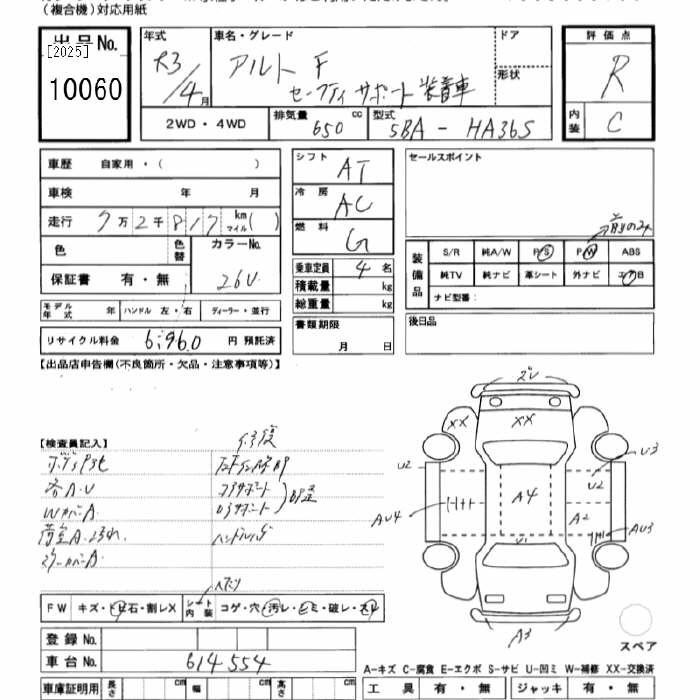 (複合機)対応用紙
出品No.
[2025]
10060
年式
R3/4月
車名・グレード
アルト F
セーフティサポート装着車
ドア
形状
評価点
R
内装
C
2WD・4WD
排気量 650 cc
型式 5BA-HA36S
車歴 自家用・( )
車検 年 月
走行 7万2千817 km マイル( )
色
色替
カラーNo.
26U
保証書 有・無
モデル年式 年
ハンドル 左・右
ディーラー・並行
リサイクル料金 6,960 円 預託済
シフト AT
冷房 AC
燃料 G
乗車定員 4名
積載量 kg
総重量 kg
書類期限
月 日
セールスポイント
前のみ
装備品
S/R 純A/W P/S P/W ABS
純TV 純ナビ 革シート 外ナビ エアB
ナビ型番:
後日品
【出品店申告欄(不良箇所・欠品・注意事項等)】
【検査員記入】
修復
各A.U
WカバーA
コアサポート
ロアサポート
FW キズ・トビ石・割レX
シート内装 コゲ・穴・汚レ・シミ・破レ・スレ
登録No.
車台No. 614554
車庫証明用 長さ cm 幅 cm 高さ cm
2U
XX XX
U2
U3
U2
AU4
A4
A2
AU3
U1
A3
スペア
A-キズ C-腐食 E-エクボ S-サビ U-凹ミ W-補修 XX-交換済
工具 有・無 ジャッキ 有・無